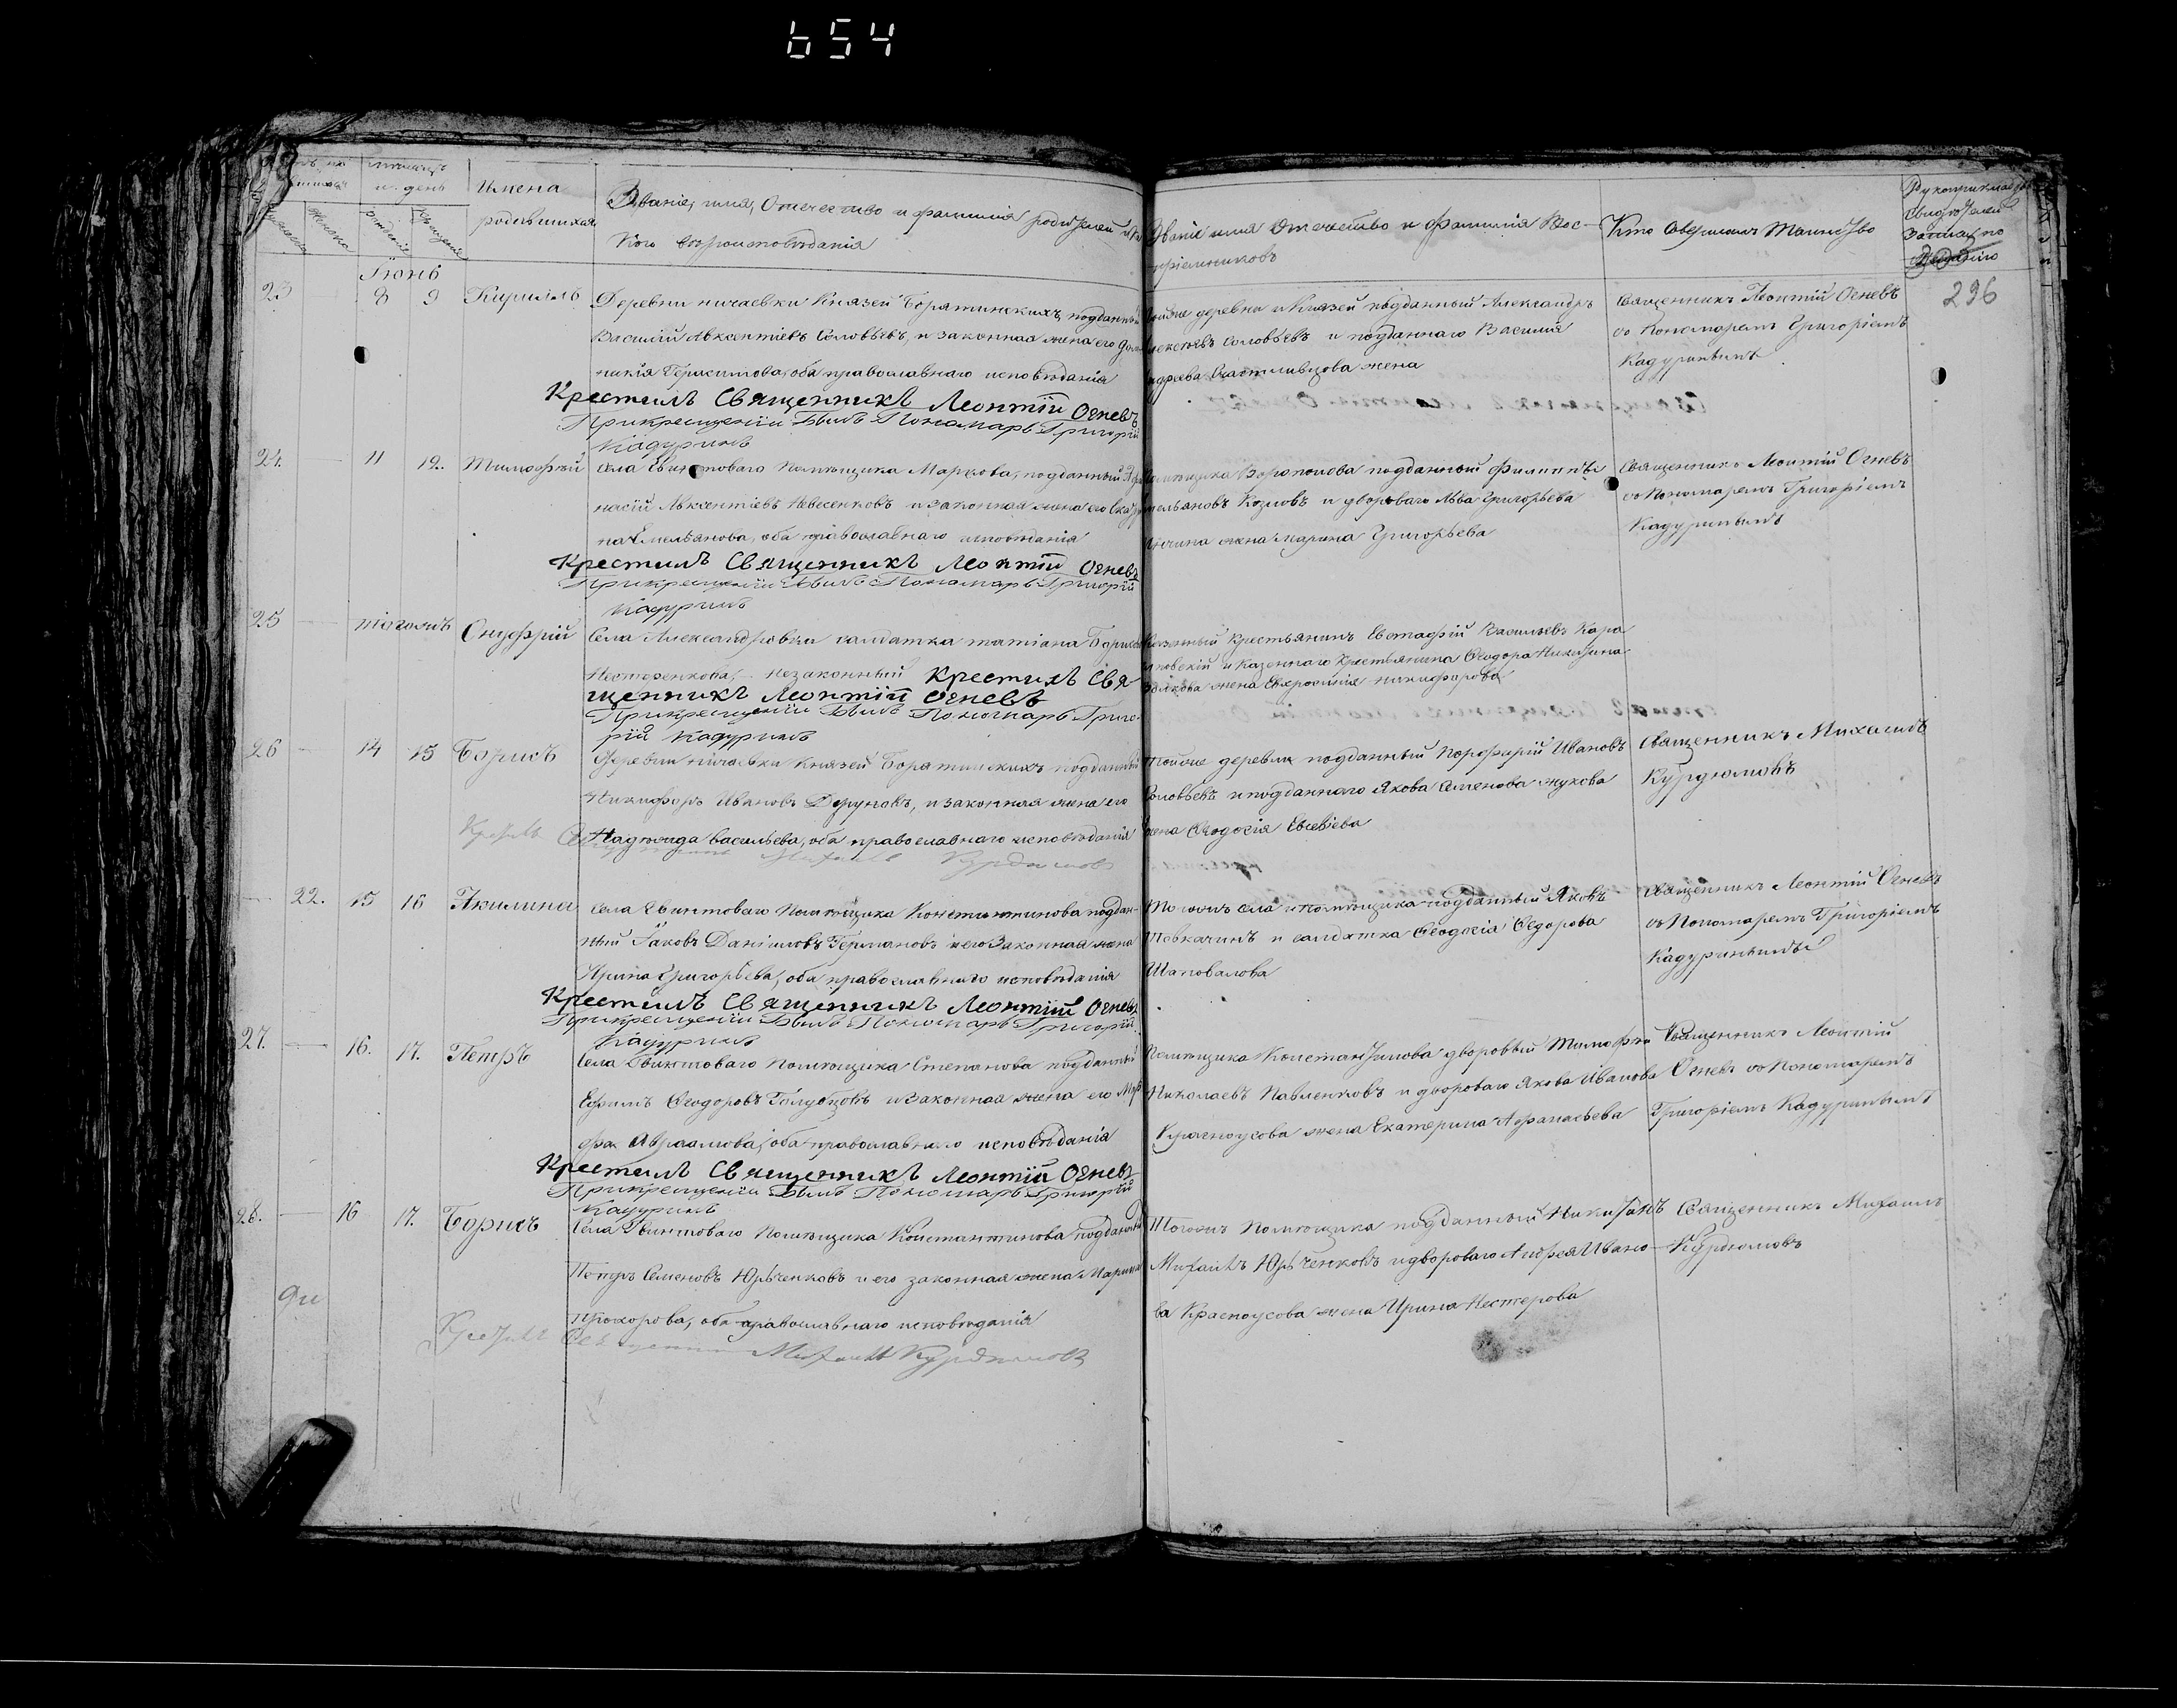 654
Имена
родившихся
Званіе, имя, Отечество и фамилія родителей и
Кого вѣроисповѣданія
Званіе имя Отечество и Фамилія Вос-
пріемниковъ
Кто Совершалъ Таинство
Рукоприкладство
Свидѣтелей
Записи по
296
Іюнь
23 8 9 Кириллъ
Деревни ничаевки Князей Борятинскихъ, подданный
Василій Авксентіевъ Соловьевъ, и законная жена его дом
никія Герасимова, оба православнаго исповѣданія
Крестилъ Священникъ Леонтій Огневъ
Прикрещеніи Былъ Пономарь Григорій
Кадуринъ
тойже деревни и Князей подданный Александръ
Алексѣевъ Соловьевъ и подданнаго Василія
Андреева Счастливцова жена
Священникъ Леонтій Огневъ
со Пономаремъ Григоріемъ
Кадуринымъ
24. 11 12. Тимофѣй
Села Свинтоваго Помѣщика Маркова, подданный Афа
насій Авксентіевъ Невесенковъ и законная жена его
на Емельянова, оба православнаго исповѣданія
Крестилъ Священникъ Леонтій Огневъ
Прикрещеніи Былъ Пономарь Григорій
Кадуринъ
Помѣщика подданный Филиппъ
Емельяновъ Козловъ и двороваго Льва Григорьева
жена Марина Григорьева
Священникъ Леонтій Огневъ
со Пономаремъ Григоріемъ
Кадуринымъ
25 тогожъ Онуфрій
Села Александровки салдатка татіана Борисова
Несторенкова, незаконный Крестилъ Свя-
щенникъ Леонтій Огневъ
Прикрещеніи Былъ Пономарь Григо-
рій Кадуринъ
Казенный крестьянинъ Евстафій Васильевъ Кара
и Казеннаго Крестьянина Феодора Никитина
жена Евфросинія никифорова
26 14 15 Борисъ
Деревни ничаевки Князей Борятинскихъ подданный
Никифоръ Ивановъ Дерунокъ, и законная жена его
Надѣжда васильева, оба православнаго исповѣданія
Крестилъ Священникъ Михаилъ Курдюмовъ
Тойже деревни подданный Порфирій Ивановъ
Соловьевъ и подданнаго Якова Семенова жукова
жена Феодосія Евсевіева
Священникъ Михаилъ
Курдюмовъ
22. 15 16 Акилина
Села Свинтоваго Помѣщика Константинова поддан-
ный Іаковъ Даніиловъ Германовъ и его Законная жена
Ирина Григорьева, оба православнаго исповѣданія
Крестилъ Священникъ Леонтій Огневъ
Прикрещеніи Былъ Пономарь Григорій
Кадуринъ
Тогожъ села и помѣщика подданный Яковъ
Певкачинъ и салдатка Феодосія Федорова
Шаповалова
Священникъ Леонтій Огневъ
со Пономаремъ Григоріемъ
Кадуринымъ
27. 16. 17. Петръ
Села Свинтоваго Помѣщика Степанова подданный
Ефимъ Феодоровъ Голубцовъ и Законная жена его Мар
фа Авраамова, оба православнаго исповѣданія
Крестилъ Священникъ Леонтій Огневъ
Прикрещеніи Былъ Пономарь Григорій
Кадуринъ
Помѣщика Константинова дворовый Тимофѣй
Николаевъ Павленковъ и двороваго Якова Иванова
Красноусова жена Екатерина Афанасьева
Священникъ Леонтій
Огневъ со Пономаремъ
Григоріемъ Кадуринымъ
28. 16 17. Борисъ
Села Свинтоваго Помѣщика Константинова подданный
Петръ Семеновъ Юрьченковъ и его законная жена Марина
Прохорова, оба православнаго исповѣданія
Крестилъ Священникъ Михаилъ Курдюмовъ
Тогожъ Помѣщика подданный Никита
Михаилъ Юрьченковъ и двороваго Андрея Ивано-
ва Красноусова жена Ирина Нестерова
Священникъ Михаилъ
Курдюмовъ